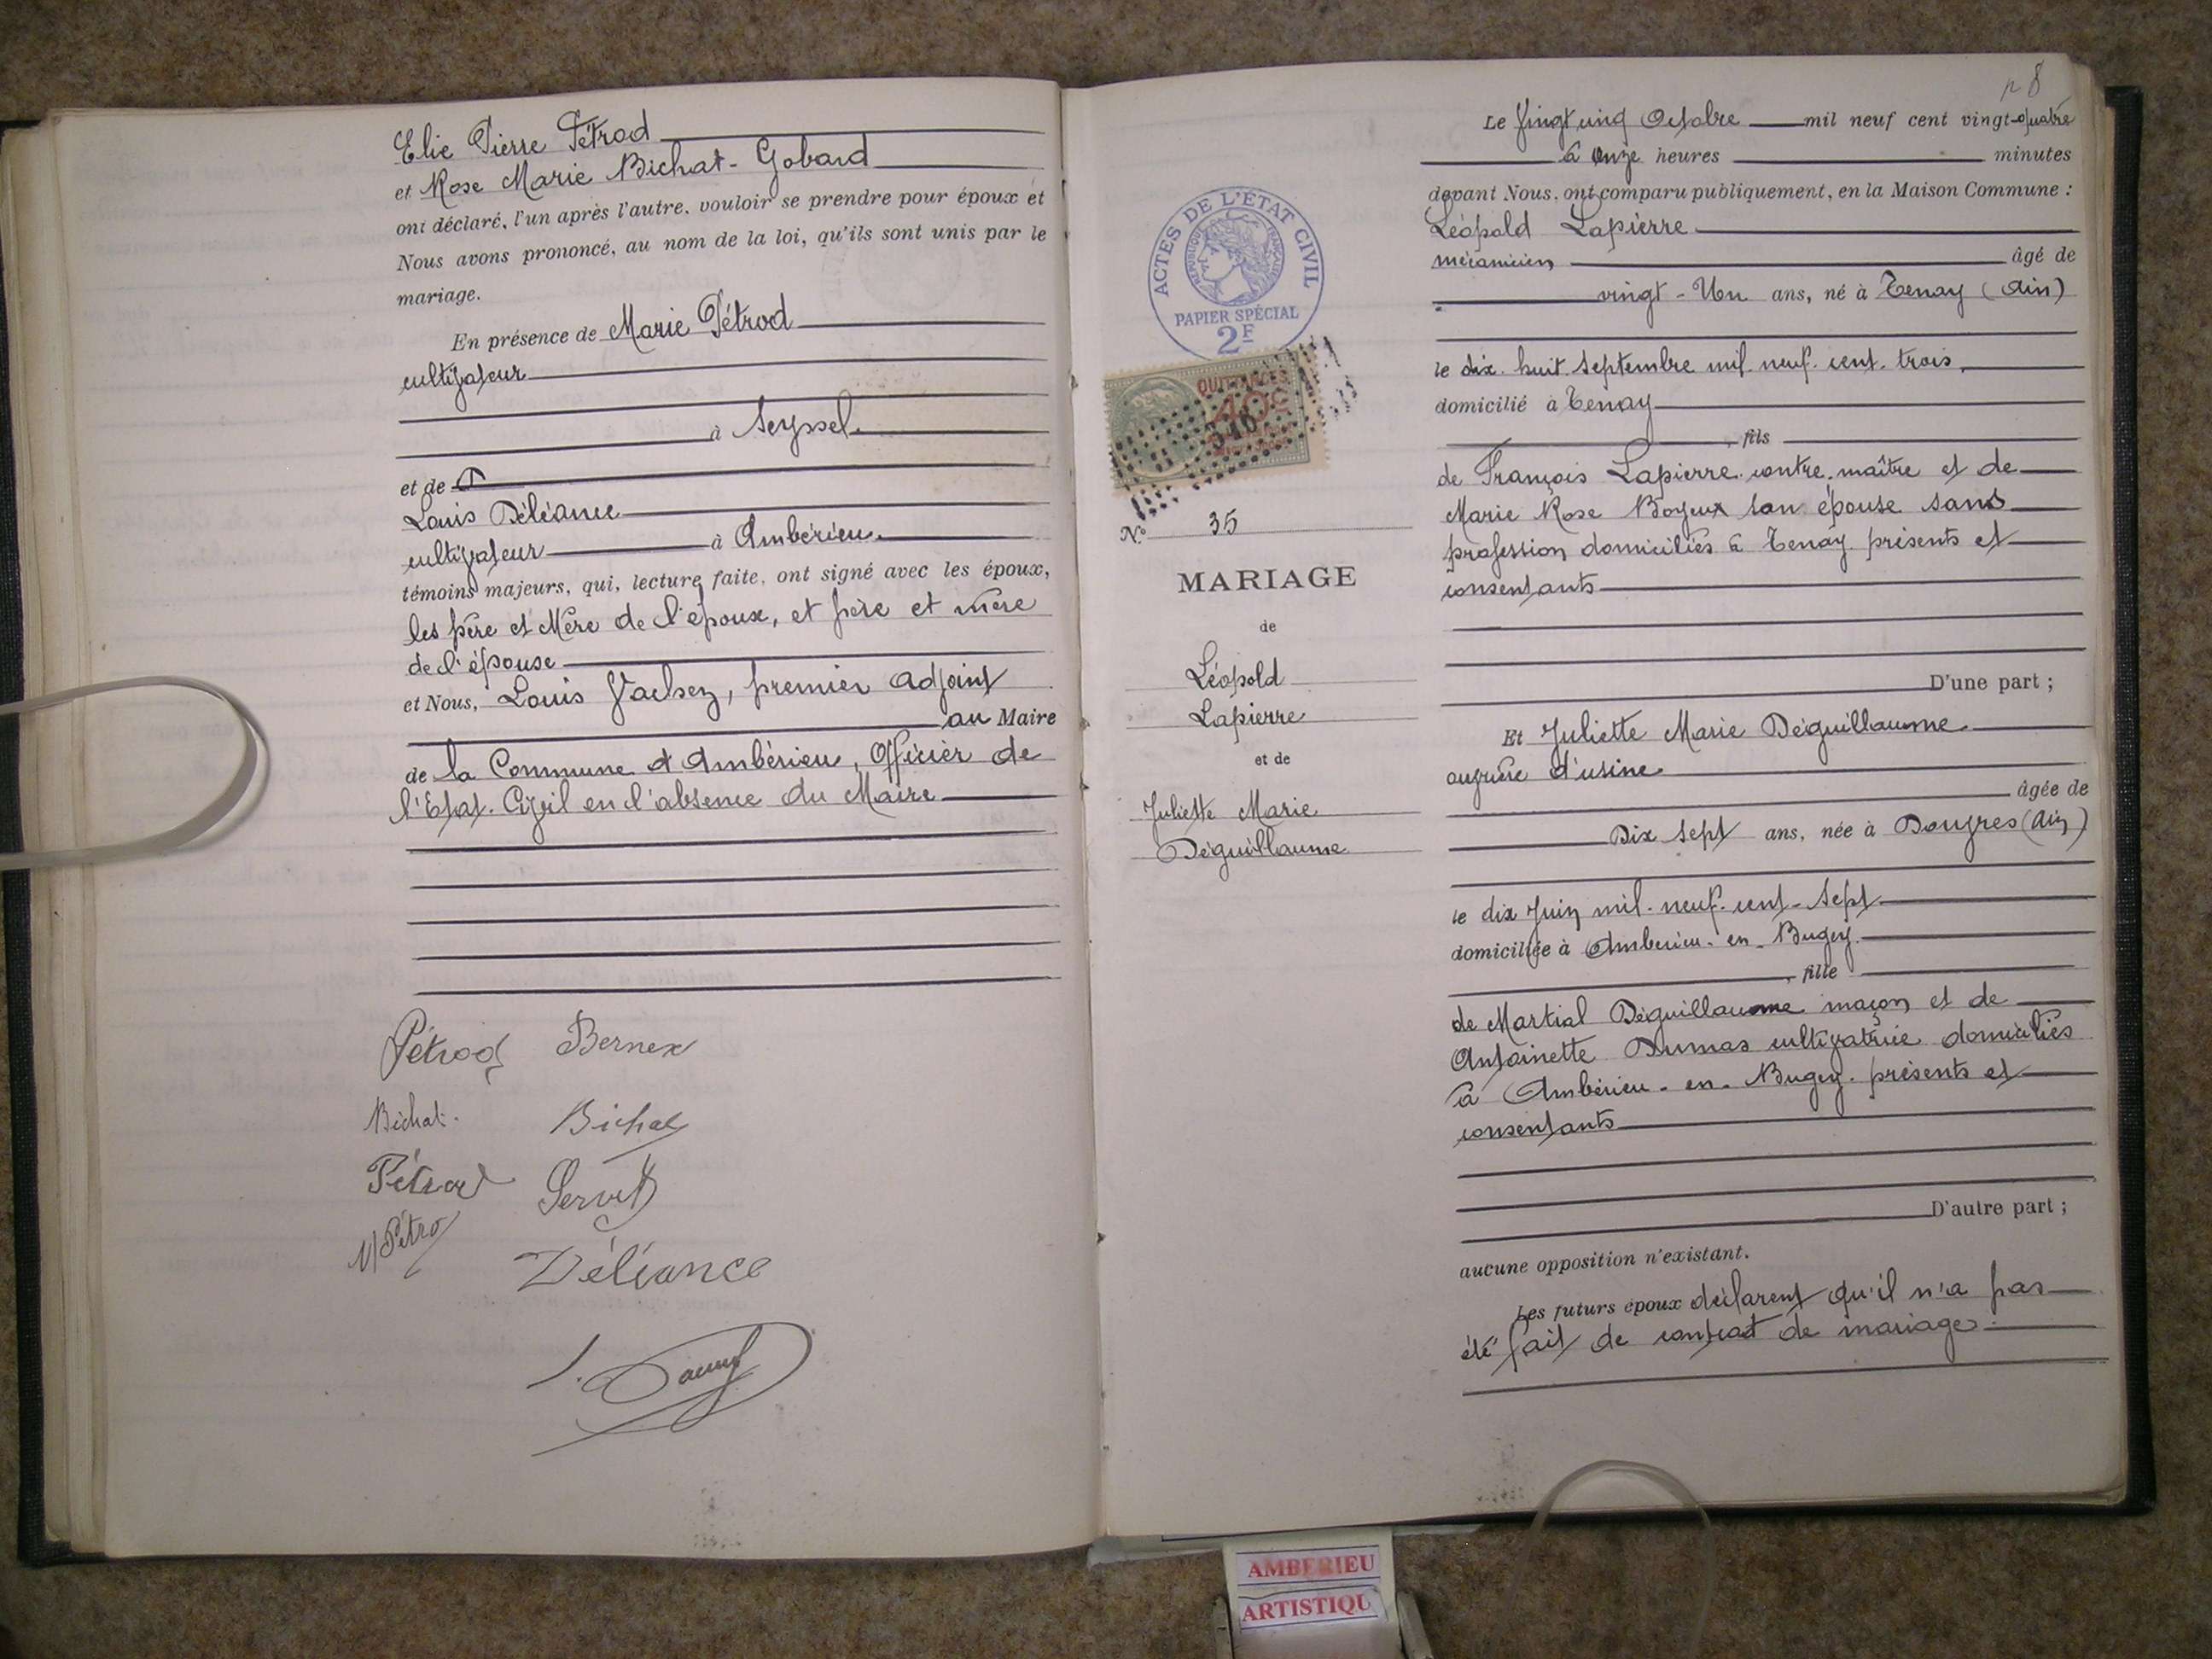 Elie Pierre Pétrod
et Rose Marie Bichat-Gobard
ont déclaré, l'un après l'autre, vouloir se prendre pour époux et
Nous avons prononcé, au nom de la loi, qu'ils sont unis par le
mariage.
En présence de Marie Pétrod
cultivateur
à Seyssel.
et de
Louis Déléance
cultivateur à Ambérieu.
témoins majeurs, qui, lecture faite, ont signé avec les époux,
les père et Mère de l'époux, et père et mère
de l'épouse
et Nous, Louis premier adjoint
au Maire
de la Commune d'Ambérieu, Officier de
l'Etat-Civil en l'absence du Maire
Pétrod Bernex
Bichat. Bichat
Pétrod
M Pétro
Déléance
n 8
ACTES DE L'ÉTAT CIVIL
RÉPUBLIQUE FRANÇAISE
PAPIER SPÉCIAL
2F
QUITTANCES
40c
346
N° 35
MARIAGE
de
Léopold
Lapierre
et de
Juliette Marie
Déguillaume
Le Vingt cinq Octobre mil neuf cent vingt-quatre
à onze heures minutes
devant Nous, ont comparu publiquement, en la Maison Commune :
Léopold Lapierre
mécanicien âgé de
vingt-Un ans, né à Tenay (Ain)
le dix-huit Septembre mil-neuf-cent-trois,
domicilié à Tenay
, fils
de François Lapierre contre-maître et de
Marie Rose Boyeux son épouse sans
profession domiciliés à Tenay présents et
consentants
D'une part ;
Et Juliette Marie Déguillaume
ouvrière d'usine
âgée de
Dix sept ans, née à Douvres (Ain)
le dix Juin mil-neuf-cent-sept
domiciliée à Ambérieu-en-Bugey.
, fille
de Martial Déguillaume maçon et de
Antoinette Dumas cultivatrice domiciliés
à Ambérieu-en-Bugey. présents et
consentants
D'autre part ;
aucune opposition n'existant.
Les futurs époux déclarent qu'il n'a pas
été fait de contrat de mariage.
AMBERIEU
ARTISTIQU